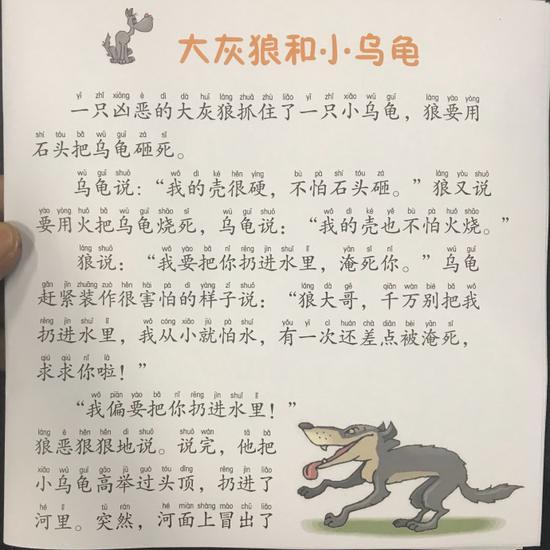 大灰狼和小乌龟
一只凶恶的大灰狼抓住了一只小乌龟，狼要用
石头把乌龟砸死。
乌龟说：“我的壳很硬，不怕石头砸。”狼又说
要用火把乌龟烧死，乌龟说：“我的壳也不怕火烧。”
狼说：“我要把你扔进水里，淹死你。”乌龟
赶紧装作很害怕的样子说：“狼大哥，千万别把我
扔进水里，我从小就怕水，有一次还差点被淹死，
求求你啦！”
“我偏要把你扔进水里！”
狼恶狠狠地说。说完，他把
小乌龟高举过头顶，扔进了
河里。突然，河面上冒出了